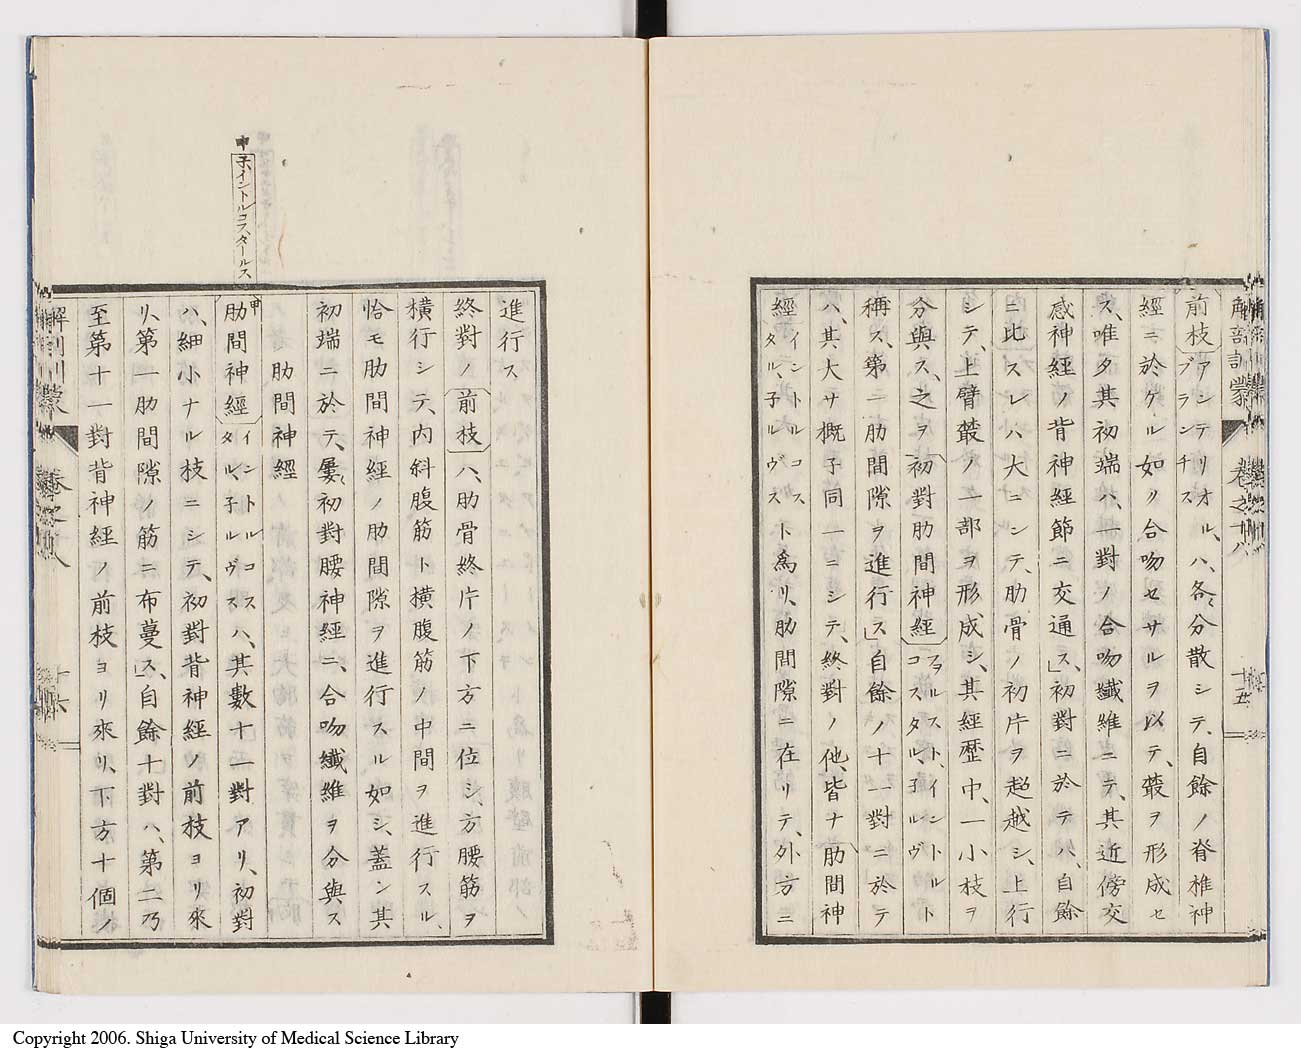 解剖訓蒙 卷之十八 十五
前枝 アンテリオル、ブランチス ハ、各〻分散シテ、自餘ノ脊椎神
經ニ於ケル如ク合吻セサルヲ以テ、叢ヲ形成セ
ス、唯タ其初端ハ、一對ノ合吻纖維ニテ、其近傍交
感神經ノ背神經節ニ交通ス」初對ニ於テハ、自餘
ニ比スレハ大ニシテ、肋骨ノ初片ヲ超越シ、上行
シテ、上臂叢ノ一部ヲ形成シ、其經歷中、一小枝ヲ
分與ス、之ヲ 初對肋間神經 フアルスト、イントルトコスタル、子ルヴ ト
稱ス、第二肋間隙ヲ進行ス」自餘ノ十一對ニ於テ
ハ、其大サ概子同一ニシテ、終對ノ他、皆ナ肋間神
經 イントルコスタル、子ルヴス ト爲リ、肋間隙ニ在リテ、外方ニ
進行ス
終對ノ 前枝 ハ、肋骨終片ノ下方ニ位シ、方腰筋ヲ
橫行シテ、内斜腹筋ト橫腹筋ノ中間ヲ進行スル、
恰モ肋間神經ノ肋間隙ヲ進行スル如シ、蓋シ其
初端ニ於テ、屢〻初對腰神經ニ、合吻纖維ヲ分與ス
肋間神經
甲 肋間神經 イントルコスタル、子ルヴス ハ、其數十一對アリ、初對
ハ、細小ナル枝ニシテ、初對背神經ノ前枝ヨリ來
リ、第一肋間隙ノ筋ニ布蔓ス」、自餘十對ハ、第二乃
至第十一對背神經ノ前枝ヨリ來リ、下方十個ノ
甲 子、イントルコスタールス
解剖訓蒙 卷之十八 十六
Copyright 2006. Shiga University of Medical Science Library